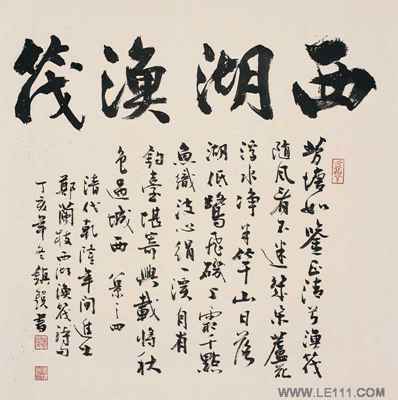 西湖漁筏
塘如鑒正清兮漁筏
隨風看不迷蘆花
浮水净半竿山日落
湖低鷺飛磯上霜千點
魚織波心絹一溪自有
釣臺堪寄興載將秋
色過城西 之四
清代乾隆年間進士
鄭蘭枝西湖漁筏詩句
丁亥年冬鎮書
WWW.LE111.COM